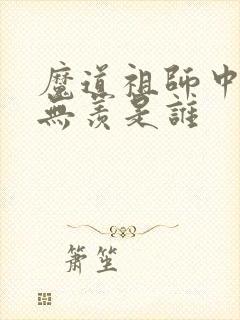 魔道祖師中
無羨是誰
簫笙